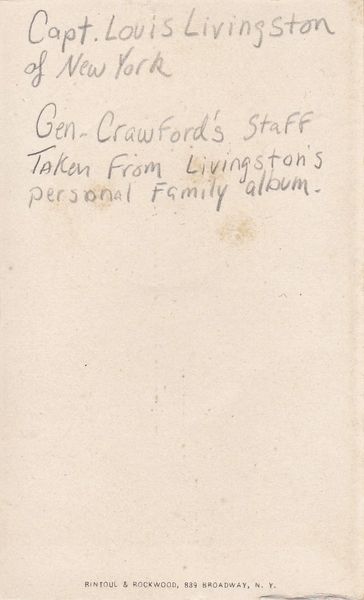 Capt. Louis Livingston
of New York
Gen- Crawford's Staff
Taken From Livingston's
personal Family album.
RINTOUL & ROCKWOOD, 839 BROADWAY, N. Y.